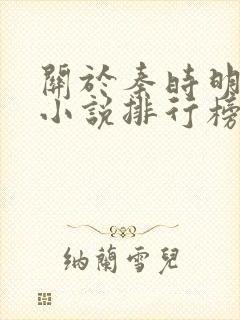 關於秦時明
小說排行榜
納蘭雪兒